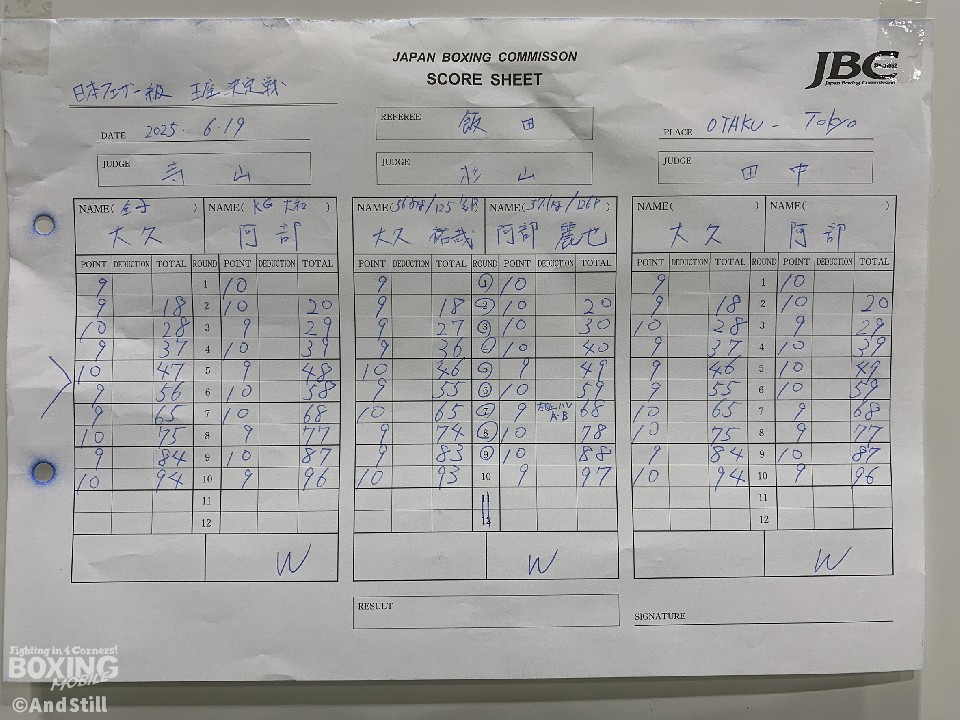 JAPAN BOXING COMMISSON
SCORE SHEET
JBC
Japan Boxing Commission
日本フェザー級 王座決定戦
DATE 2025. 6.19
REFEREE 飯田
PLACE OTAKU - Tokyo
JUDGE 寺山
JUDGE 杉山
JUDGE 田中
NAME( 金子 ) NAME( KG大和 ) NAME( ) NAME( ) NAME( ) NAME( )
大久 阿部 大久 祐哉 阿部 麗也 大久 阿部
POINT DEDUCTION TOTAL ROUND POINT DEDUCTION TOTAL POINT DEDUCTION TOTAL ROUND POINT DEDUCTION TOTAL POINT DEDUCTION TOTAL ROUND POINT DEDUCTION TOTAL
9 1 10 9 1 10 9 1 10
9 18 2 10 20 9 18 2 10 20 9 18 2 10 20
10 28 3 9 29 9 27 3 10 30 10 28 3 9 29
9 37 4 10 39 9 36 4 10 40 9 37 4 10 39
10 47 5 9 48 10 46 5 9 49 9 46 5 10 49
9 56 6 10 58 9 55 6 10 59 9 55 6 10 59
9 65 7 10 68 10 65 7 9 68 10 65 7 9 68
10 75 8 9 77 9 74 8 10 78 10 75 8 9 77
9 84 9 10 87 9 83 9 10 88 9 84 9 10 87
10 94 10 9 96 10 93 10 9 97 10 94 10 9 96
11 11 11
12 12 12
W W W
RESULT
SIGNATURE
Fighting in 4 Corners!
BOXING
MOBILE
©AndStill